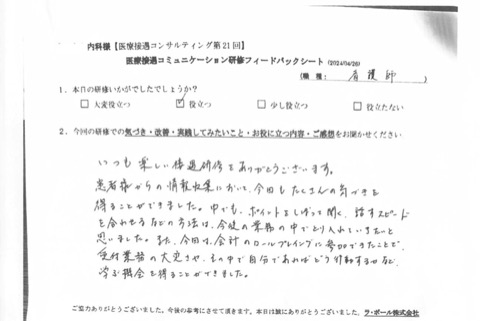 内科様【医療接遇コンサルティング第21回】
医療接遇コミュニケーション研修フィードバックシート（2024/04/26）
（職種：看護師）
1．本日の研修いかがでしたでしょうか？
□大変役立つ ☑役立つ □少し役立つ □役立たない
2．今回の研修での気づき・改善・実践してみたいこと・お役に立つ内容・ご感想をお聞かせください
いつも楽しい接遇研修をありがとうございます。
患者様からの情報収集において、今回もたくさんの気づきを
得ることができました。中でも、ポイントをしぼって聞く、話すスピード
を合わせるなどの方法は、今後の業務の中でとり入れていきたいと
思いました。また、今回は、会計のロールプレイングに参加できたことで、
受付業務の大変さや、その中で自分であればどう行動するかなど、
学ぶ機会を得ることができました。
ご協力ありがとうございました。今後の参考にさせて頂きます。本日は誠にありがとうございました。 ラ・ポール株式会社